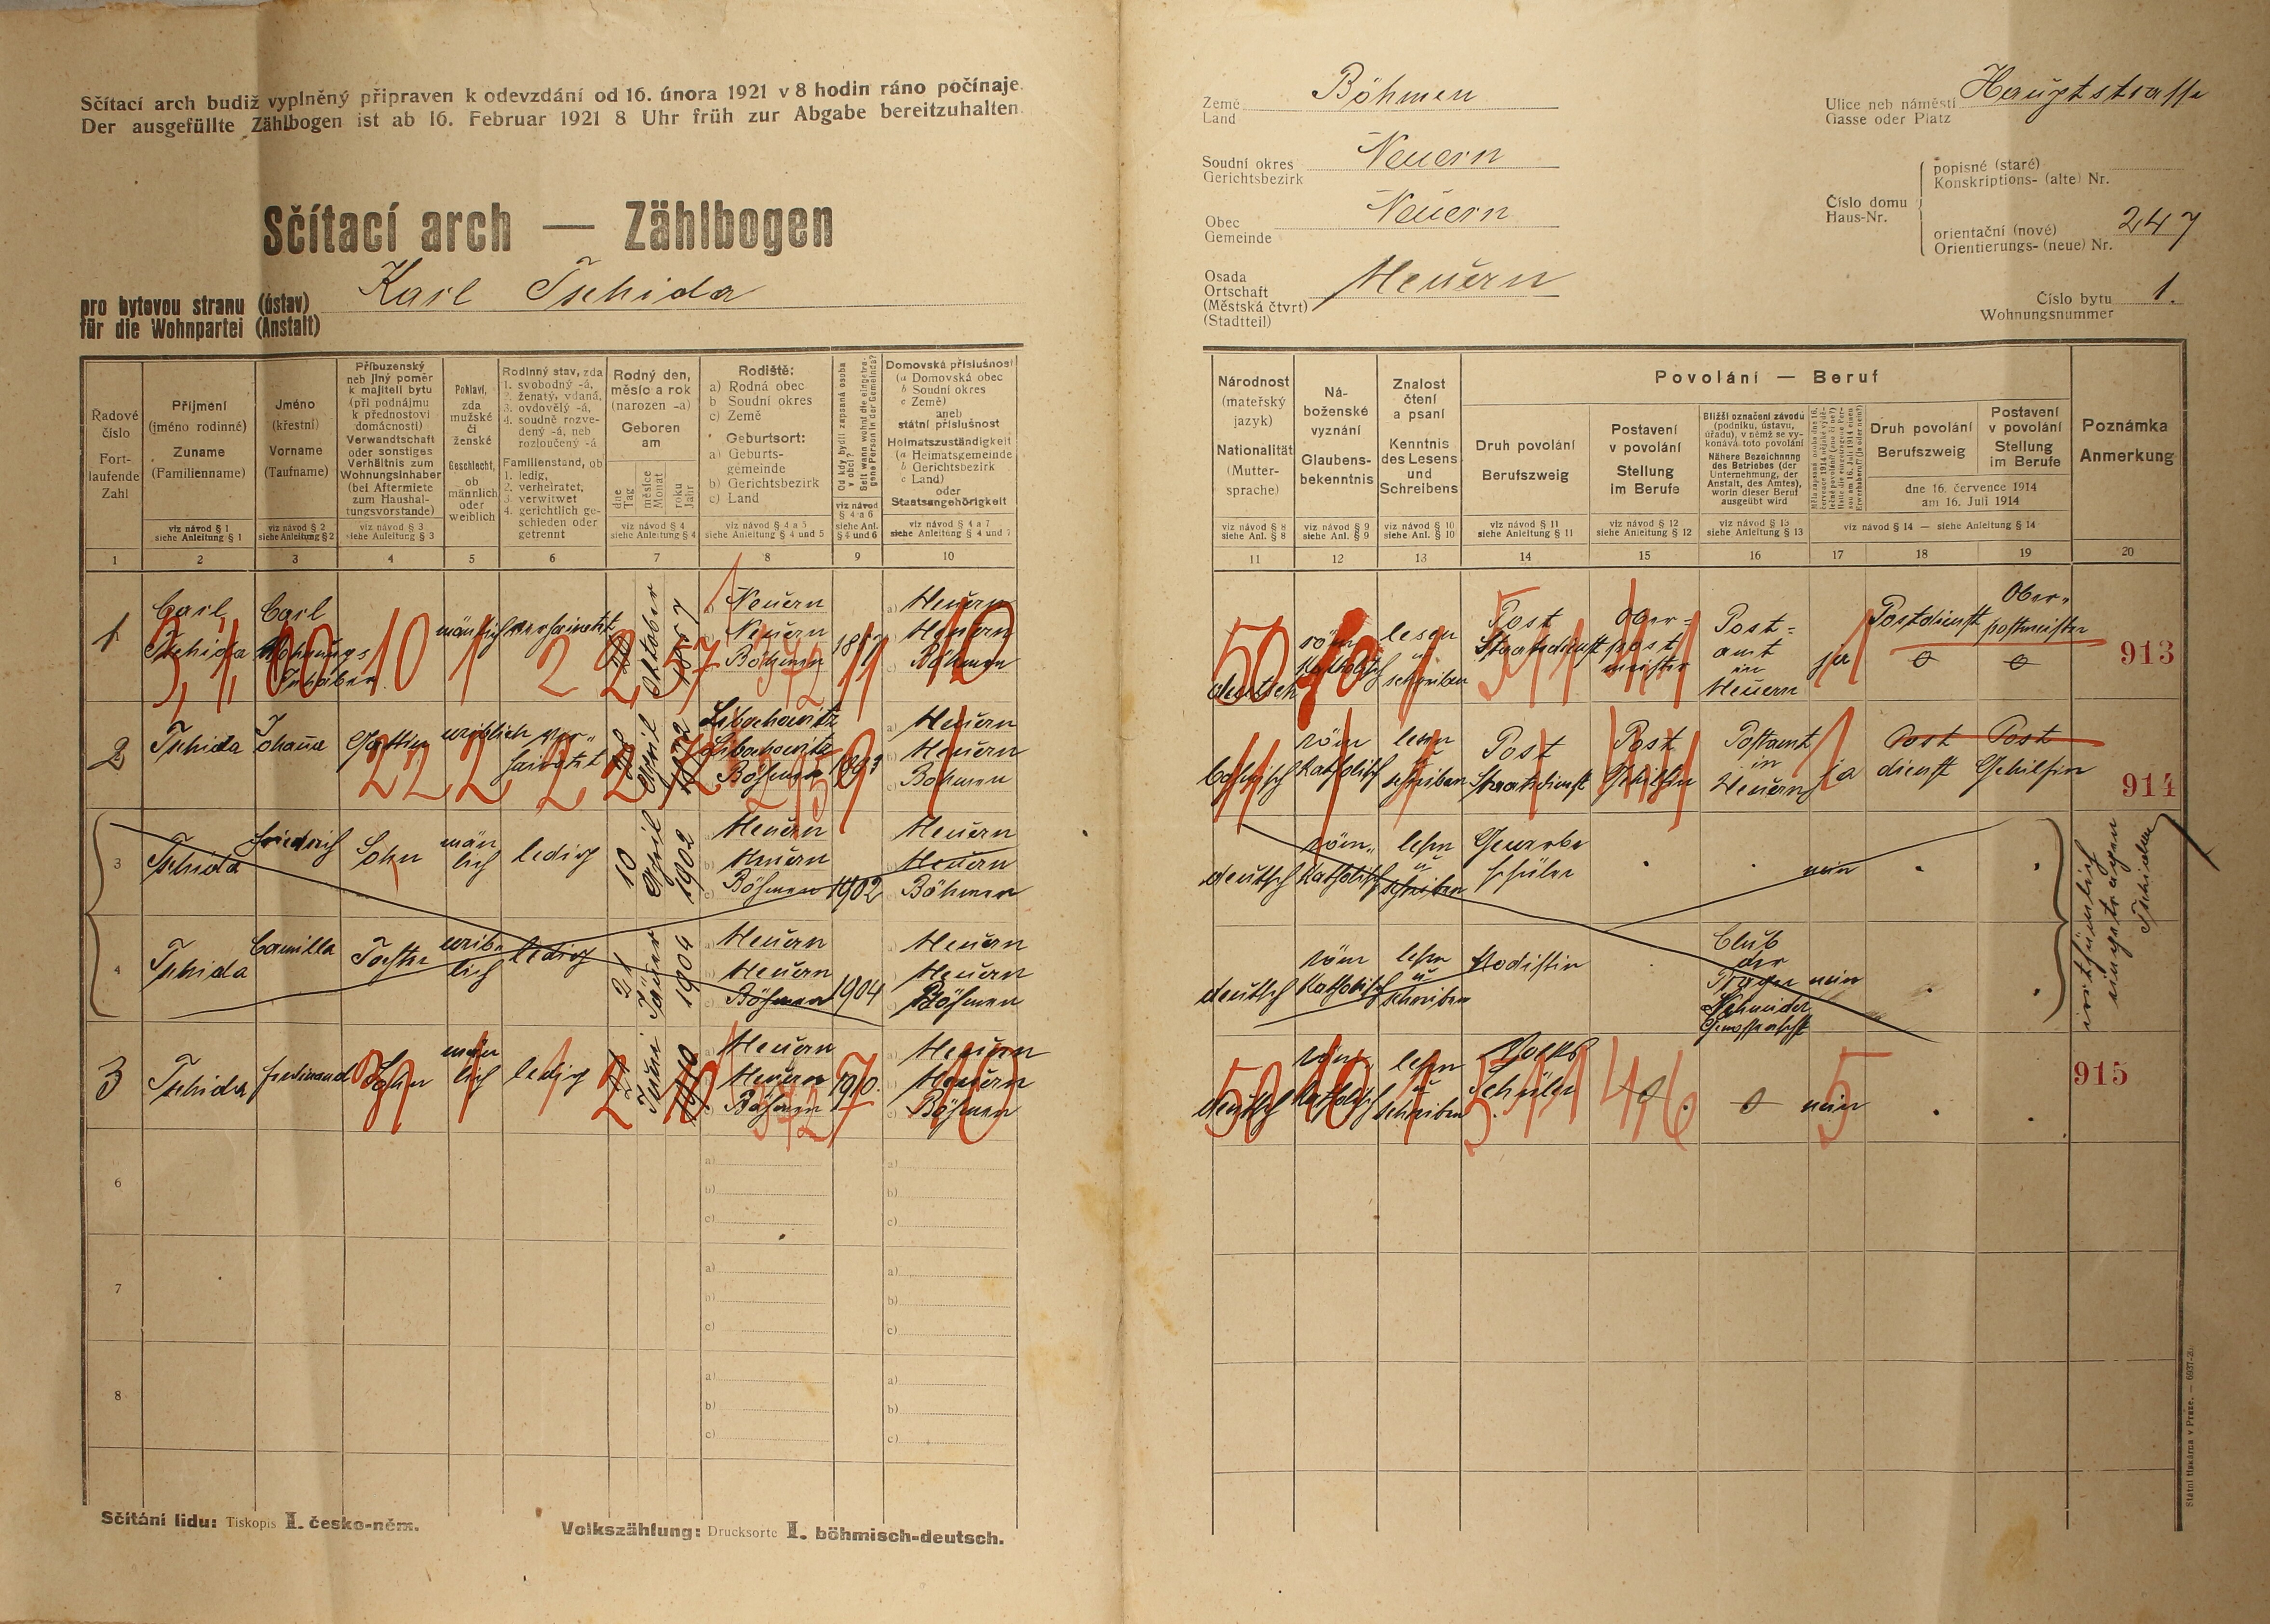 Sčítací arch budiž vyplněný připraven k odevzdání od 16. února 1921 v 8 hodin ráno počínaje.
Der ausgefüllte Zählbogen ist ab 16. Februar 1921 8 Uhr früh zur Abgabe bereitzuhalten.
Sčítací arch — Zählbogen
pro bytovou stranu (ústav)
für die Wohnpartei (Anstalt)
Karl Tschida
Země
Land
Böhmen
Soudní okres
Gerichtsbezirk
Neuern
Obec
Gemeinde
Neuern
Osada
Ortschaft
(Městská čtvrt)
(Stadtteil)
Neuern
Ulice neb náměstí
Gasse oder Platz
Hauptstrasse
Číslo domu
Haus-Nr.
popisné (staré)
Konskriptions- (alte) Nr.
orientační (nové)
Orientierungs- (neue) Nr.
247
Číslo bytu
Wohnungsnummer
1.
Řadové
číslo
Fort-
laufende
Zahl
Příjmení
(jméno rodinné)
Zuname
(Familienname)
viz návod § 1
siehe Anleitung § 1
Jméno
(křestní)
Vorname
(Taufname)
viz návod § 2
siehe Anleitung § 2
Příbuzenský
neb jiný poměr
k majiteli bytu
(při podnájmu
k přednostovi
domácnosti)
Verwandtschaft
oder sonstiges
Verhältnis zum
Wohnungsinhaber
(bei Aftermiete
zum Haushal-
tungsvorstande)
viz návod § 3
siehe Anleitung § 3
Pohlaví,
zda
mužské
či
ženské
Geschlecht,
ob
männlich
oder
weiblich
Rodinný stav, zda
1. svobodný -á,
2. ženatý, vdaná,
3. ovdovělý -á,
4. soudně rozve-
dený -á, neb
rozloučený -á
Familienstand, ob
1. ledig,
2. verheiratet,
3. verwitwet
4. gerichtlich ge-
schieden oder
getrennt
Rodný den,
měsíc a rok
(narozen -a)
Geboren
am
dne
Tag
měsíce
Monat
roku
Jahr
viz návod § 4
siehe Anleitung § 4
Rodiště:
a) Rodná obec
b) Soudní okres
c) Země
Geburtsort:
a) Geburts-
gemeinde
b) Gerichtsbezirk
c) Land
viz návod § 4 a 5
siehe Anleitung § 4 und 5
Od kdy bydlí zapsaná osoba
v obci?
Seit wann wohnt die eingetra-
gene Person in der Gemeinde?
viz návod
§ 4 a 6
siehe Anl.
§ 4 und 6
Domovská příslušnost
(a Domovská obec
b Soudní okres
c Země)
aneb
státní příslušnost
Heimatszuständigkeit
(a Heimatsgemeinde
b Gerichtsbezirk
c Land)
oder
Staatsangehörigkeit
viz návod § 4 a 7
siehe Anleitung § 4 und 7
Národnost
(mateřský
jazyk)
Nationalität
(Mutter-
sprache)
viz návod § 8
siehe Anl. § 8
Ná-
boženské
vyznání
Glaubens-
bekenntnis
viz návod § 9
siehe Anl. § 9
Znalost
čtení
a psaní
Kenntnis
des Lesens
und
Schreibens
viz návod § 10
siehe Anl. § 10
Povolání — Beruf
Druh povolání
Berufszweig
viz návod § 11
siehe Anleitung § 11
Postavení
v povolání
Stellung
im Berufe
viz návod § 12
siehe Anleitung § 12
Bližší označení závodu
(podniku, ústavu,
úřadu), v němž se vy-
konává toto povolání
Nähere Bezeichnung
des Betriebes (der
Unternehmung, der
Anstalt, des Amtes),
worin dieser Beruf
ausgeübt wird
viz návod § 13
siehe Anleitung § 13
Druh povolání
Berufszweig
Postavení
v povolání
Stellung
im Berufe
dne 16. července 1914
am 16. Juli 1914
viz návod § 14 — siehe Anleitung § 14
Poznámka
Anmerkung
1 2 3 4 5 6 7 8 9 10
11 12 13 14 15 16 17 18 19 20
1
Carl
Tschida
Carl
Wohnungs
Inhaber
10
mänlich
verheiratet
2
Oktober
a) Neuern
b) Neuern
c) Böhmen
a) Neuern
b) Neuern
c) Böhmen
10
50
deutsch
röm
Katholisch
lesen
u
schreiben
Post
Staatsdienst
Ober-
post
meister
Post-
amt
in
Neuern
ja
Postdienst
Ober-
postmeister
913
2
Tschida
Johana
Gattin
22
weiblich
2
ver-
heiratet
2
April
Libochowitz
Libochowitz
Böhmen
a) Neuern
b) Neuern
c) Böhmen
röm
Katholisch
lesen
schreiben
Post
Staatsdienst
Post
Gehilfin
Postamt
in
Neuern
ja
Post
dienst
Post
Gehilfin
914
3
Tschida
Friedrich
Sohn
män
lich
ledig
10
April
1902
a) Neuern
b) Neuern
c) Böhmen
1902
Neuern
Neuern
Böhmen
deutsch
röm.
Katholisch
lesen
u
schreiben
Gewerbe
schüler
nein
4
Tschida
Camilla
Tochter
weib
lich
ledig
21
Jäner
1904
a) Neuern
b) Neuern
c) Böhmen
1904
Neuern
Neuern
Böhmen
deutsch
röm
Katholisch
lesen
u
schreiben
Modistin
Club
der
Prager
Schneider
Genossenschaft
nein
irrthümlich
eingetragen
Tschida
3
Tschida
Ferdinand
Sohn
män
lich
ledig
21
1910
a) Neuern
b) Neuern
c) Böhmen
1910.
a) Neuern
b) Neuern
c) Böhmen
10
50
deutsch
röm
Katholisch
lesen
u
schreiben
Volks
Schüler
nein
5
915
6
a)
b)
c)
a)
b)
c)
7
a)
b)
c)
a)
b)
c)
8
a)
b)
c)
a)
b)
c)
Sčítání lidu: Tiskopis I. česko-něm.
Volkszählung: Drucksorte I. böhmisch-deutsch.
Státní tiskárna v Praze.